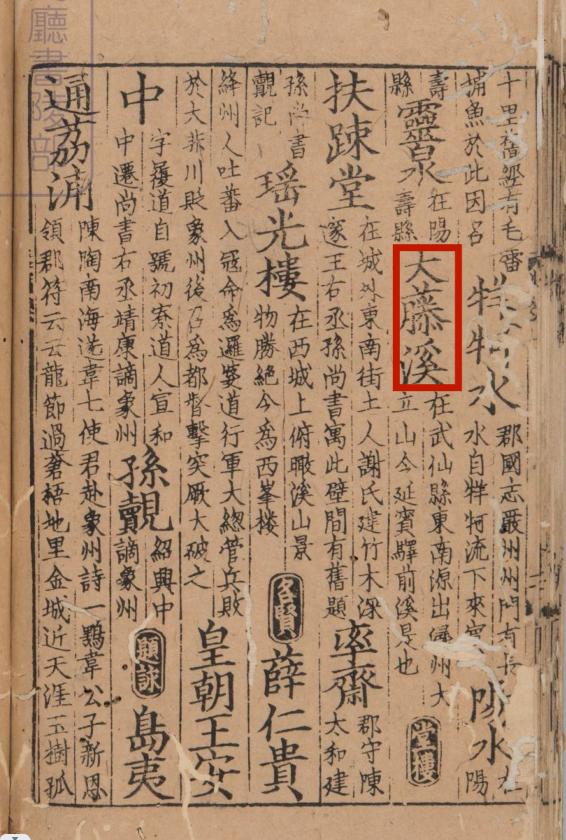 十里舊經有毛
捕魚於此因名
牂牁水
郡國志嚴州州門有長
水自牂牁流下來賓
陽水
在
陽
壽
縣
靈
水
在陽
壽縣
大藤溪
在武仙縣東南源出潯州大
立山今延賓驛前溪是也
堂樓
扶踈堂
在城外東南街士人謝氏建竹木深
邃王右丞孫尚書寓此壁間有舊題
率齋
郡守陳
太和建
孫尚書
覿記
瑶光樓
在西城上俯瞰溪山景
物勝絶今爲西峯樓
名賢
薛仁貴
絳州人吐蕃入寇命爲邏娑道行軍大緫管兵敗
於大非川貶象州後召爲都督擊突厥大破之
皇朝王安
中
字履道自號初寮道人宣和
中遷尚書右丞靖康謫象州
孫覿
紹興中
謫象州
題詠
島夷
通荔浦
陳陶南海送韋七使君赴象州詩一鶚韋公子新恩
領郡符云云龍節過蒼梧地里金城近天涯玉樹孤
廳書陵部